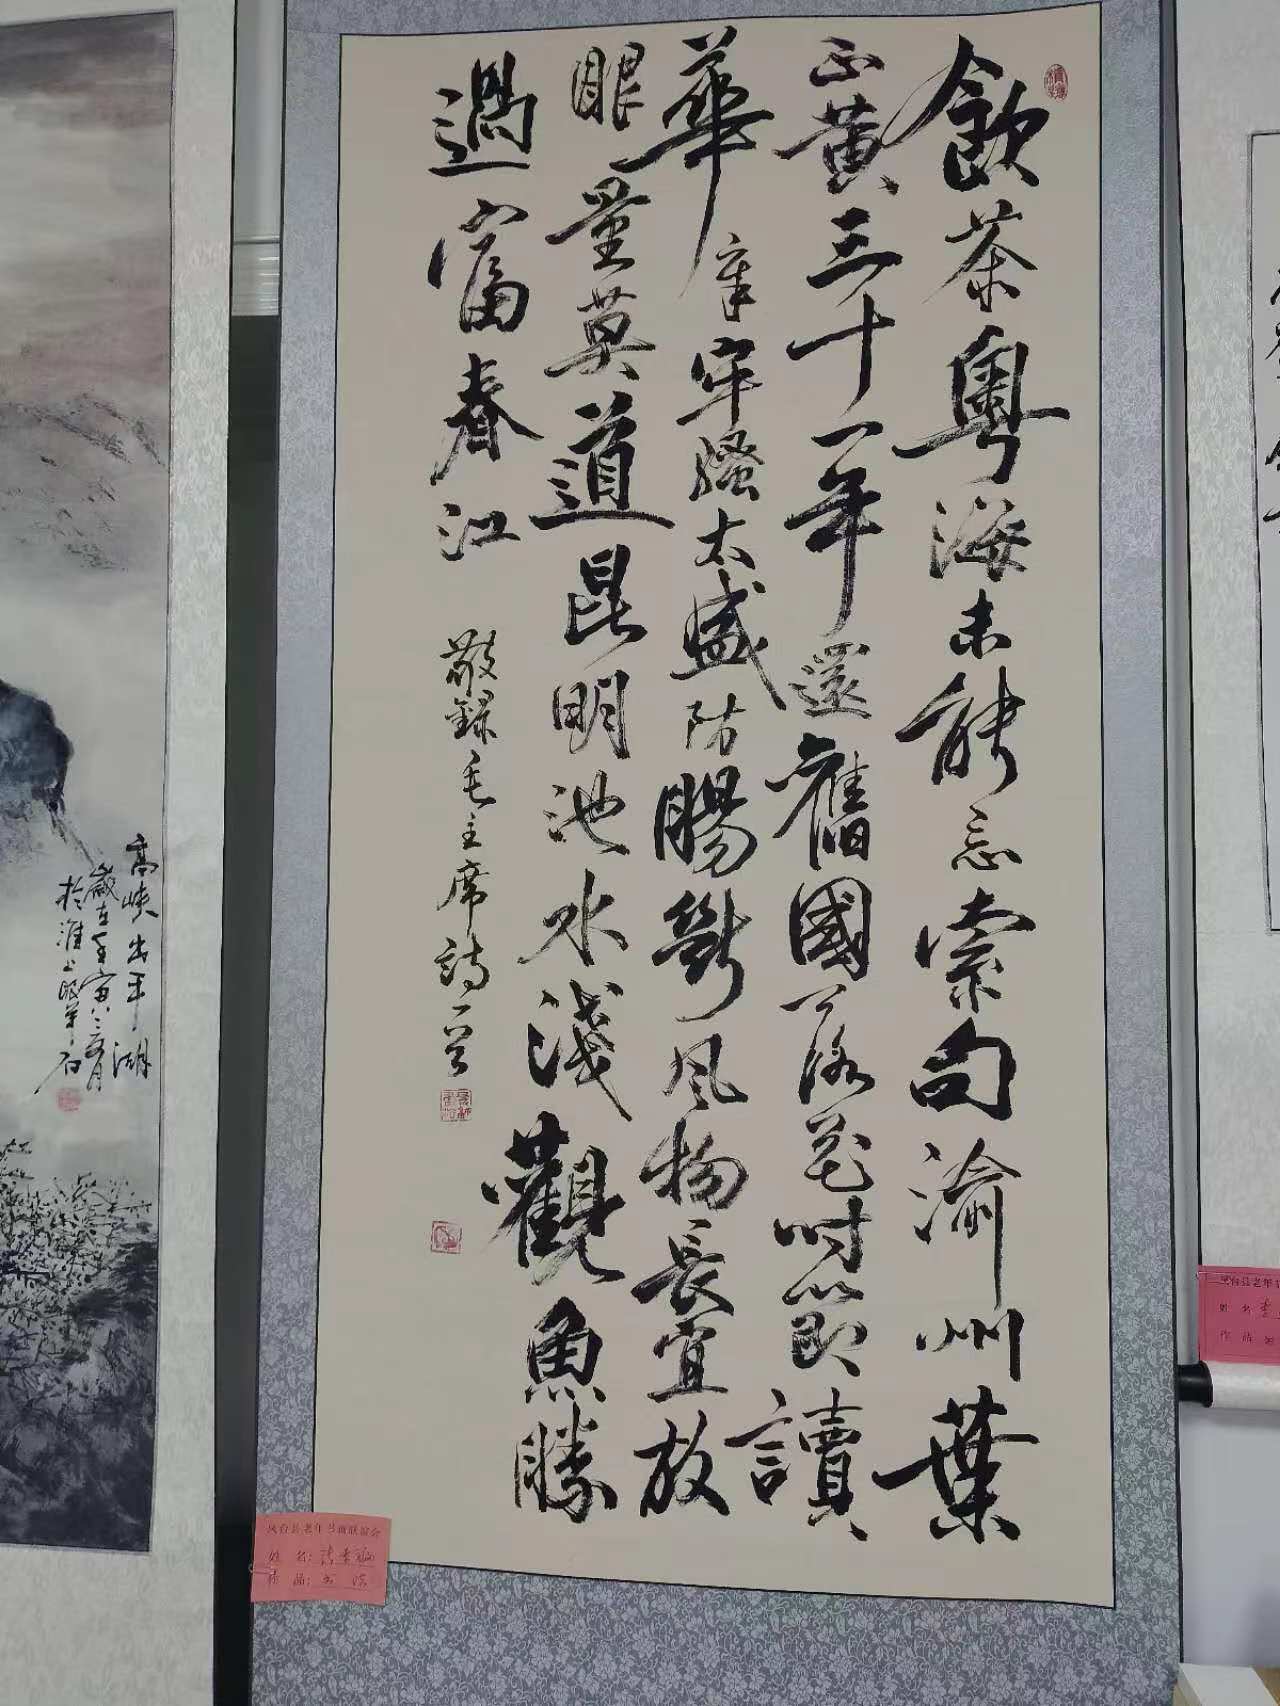 飲茶粤海未能忘索句渝州葉
正黄三十一年還舊國落花时節讀
華章牢騷太盛防腸斷风物長宜放
眼量莫道昆明池水淺觀魚勝
過富春江
敬録毛主席詩一首
高峡出平湖
歲在壬寅
於淮上
凤台县老年书画联谊会
姓名:
作品: 书法
凤台县老年
姓名 李
作品